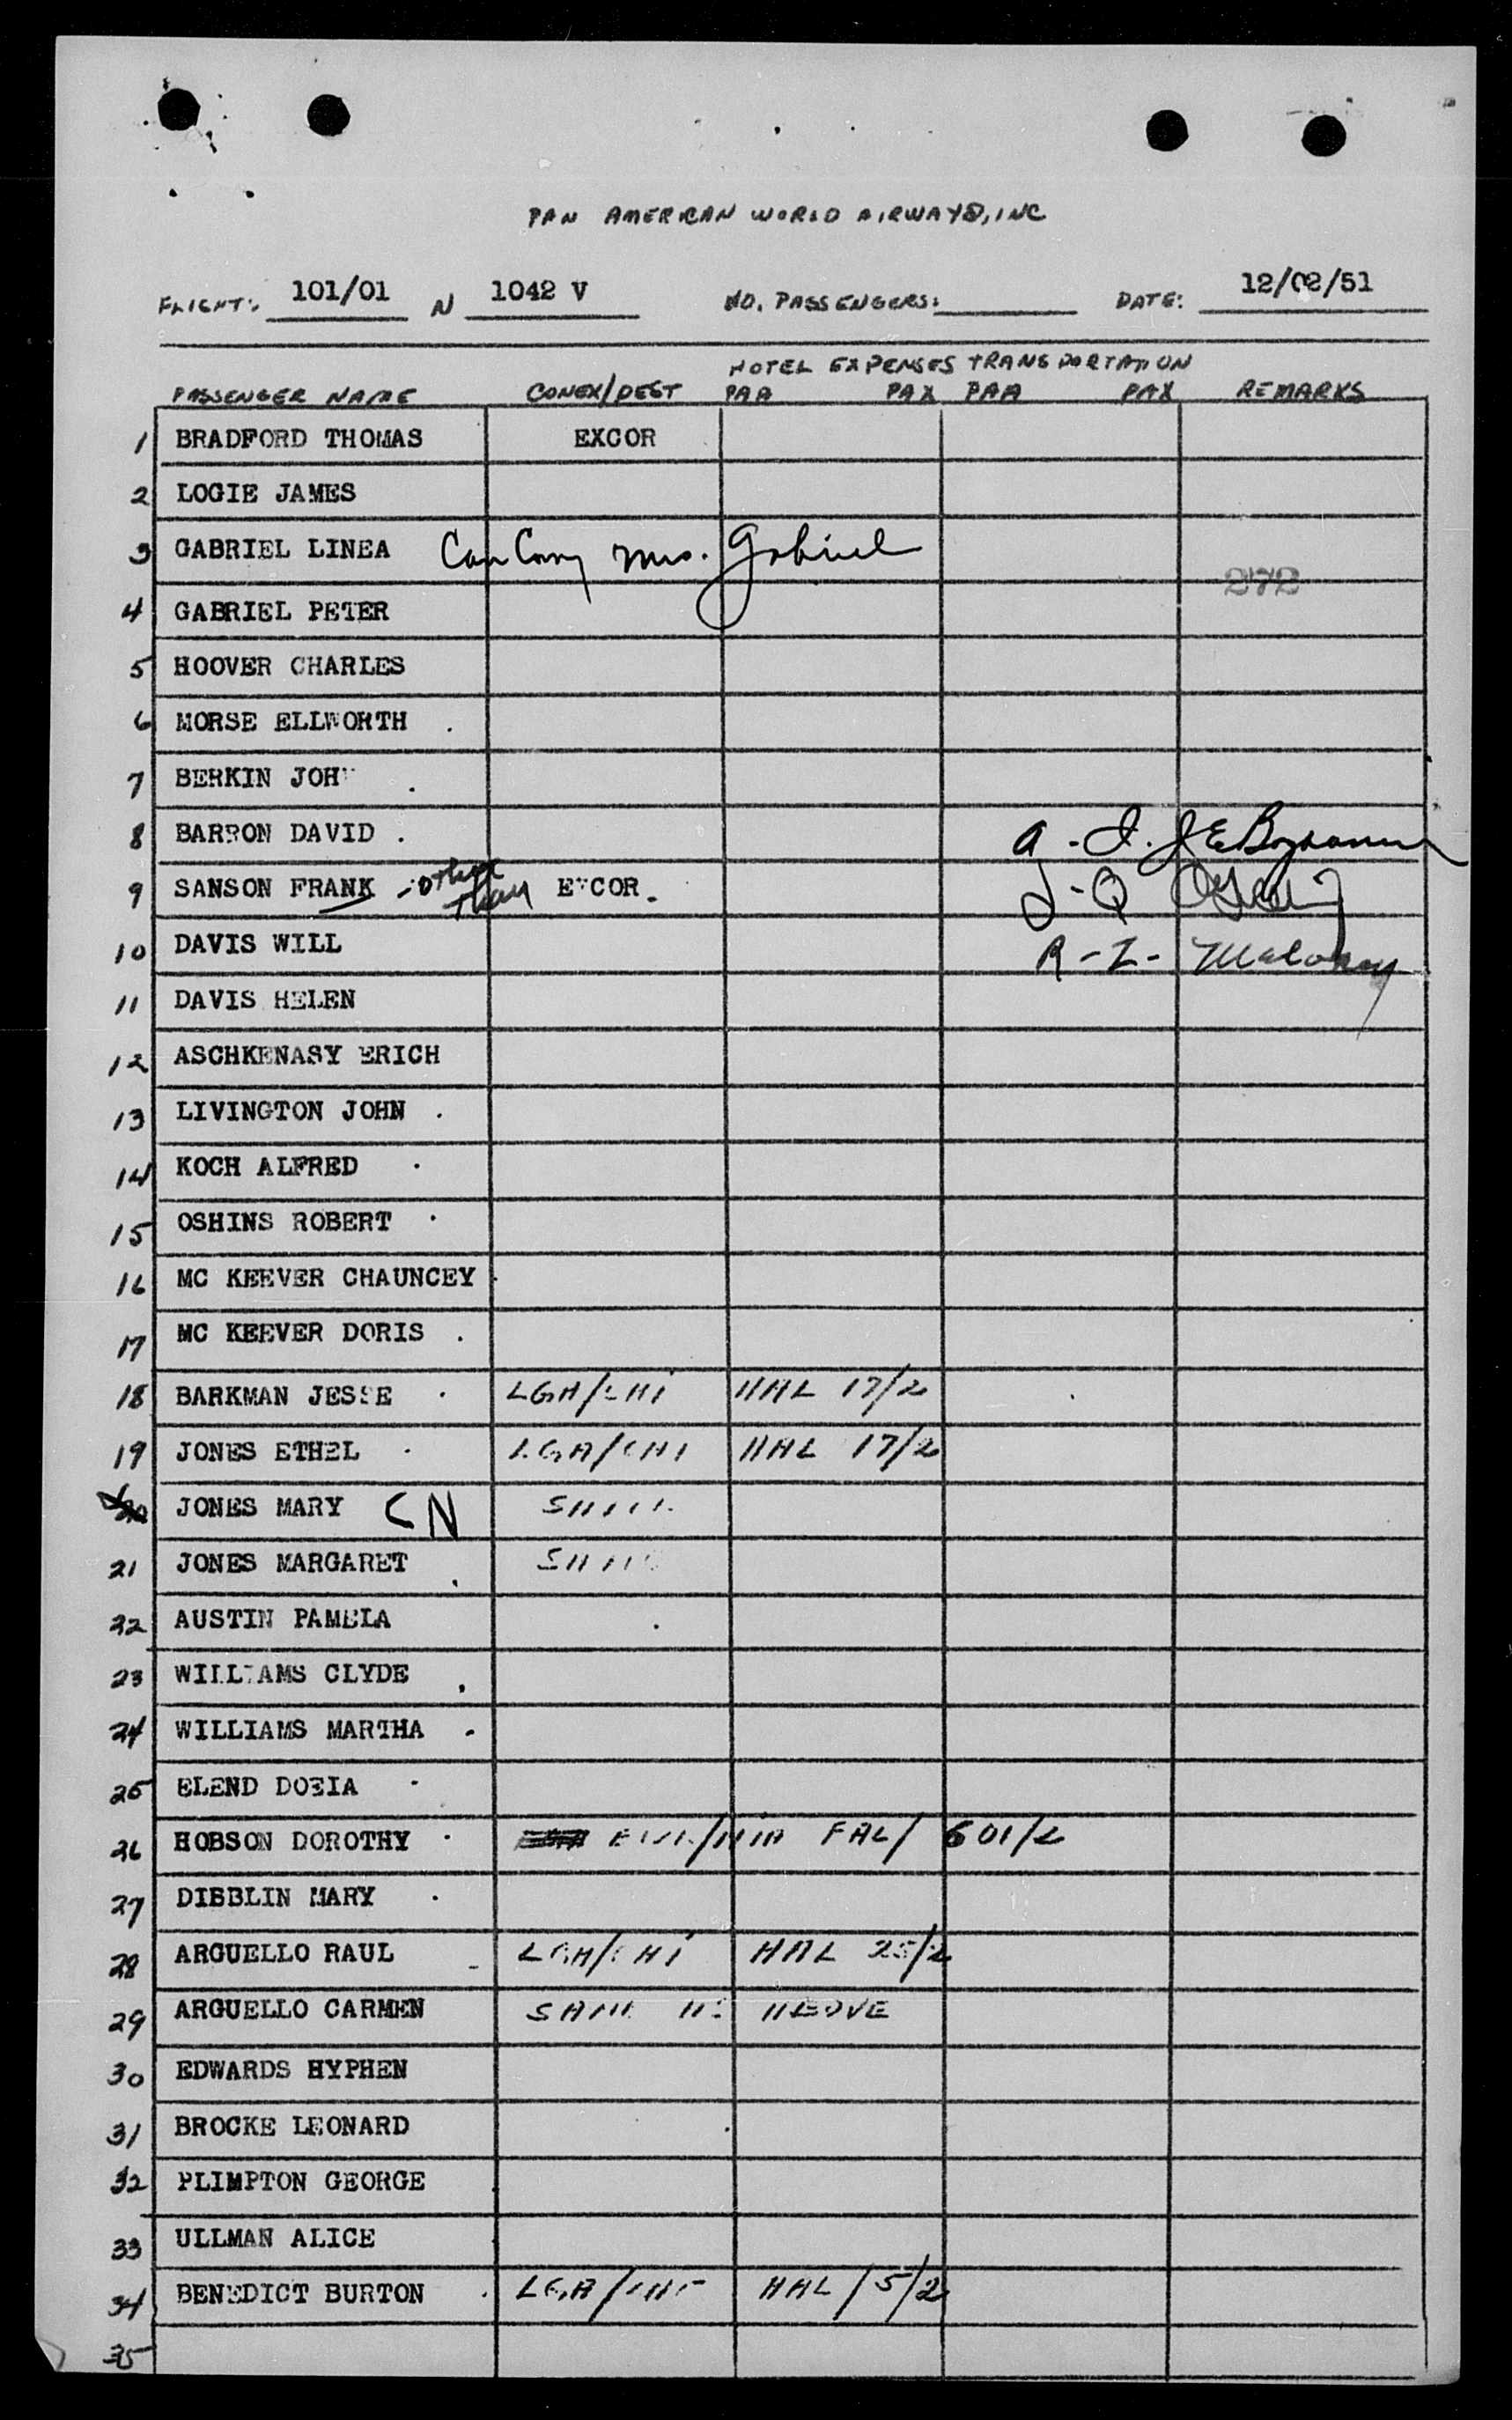 PAN AMERICAN WORLD AIRWAYS, INC
FLIGHT: 101/01 N 1042 V NO. PASSENGERS: DATE: 12/02/51
HOTEL EXPENSES TRANSPORTATION
PASSENGER NAME CONEX/DEST PAA PAX PAA PAX REMARKS
1 BRADFORD THOMAS EXCOR
2 LOGIE JAMES
3 GABRIEL LINEA Mrs. Gabriel
272
4 GABRIEL PETER
5 HOOVER CHARLES
6 MORSE ELLWORTH
7 BERKIN JOHN
8 BARRON DAVID A-I.
9 SANSON FRANK - other than EXCOR
10 DAVIS WILL R-I- Maloney
11 DAVIS HELEN
12 ASCHKENASY ERICH
13 LIVINGTON JOHN
14 KOCH ALFRED
15 OSHINS ROBERT
16 MC KEEVER CHAUNCEY
17 MC KEEVER DORIS
18 BARKMAN JESSE LGA/CHI AAL 17/2
19 JONES ETHEL LGA/CHI AAL 17/2
20 JONES MARY CN
21 JONES MARGARET
22 AUSTIN PAMELA
23 WILLIAMS CLYDE
24 WILLIAMS MARTHA
25 ELEND
26 HOBSON DOROTHY 601/2
27 DIBBLIN MARY
28 ARGUELLO RAUL LGA/CHI AAL 25/2
29 ARGUELLO CARMEN SAME AS ABOVE
30 EDWARDS HYPHEN
31 BROCKE LEONARD
32 PLIMPTON GEORGE
33 ULLMAN ALICE
34 BENEDICT BURTON LGA/ AAL 15/2
35